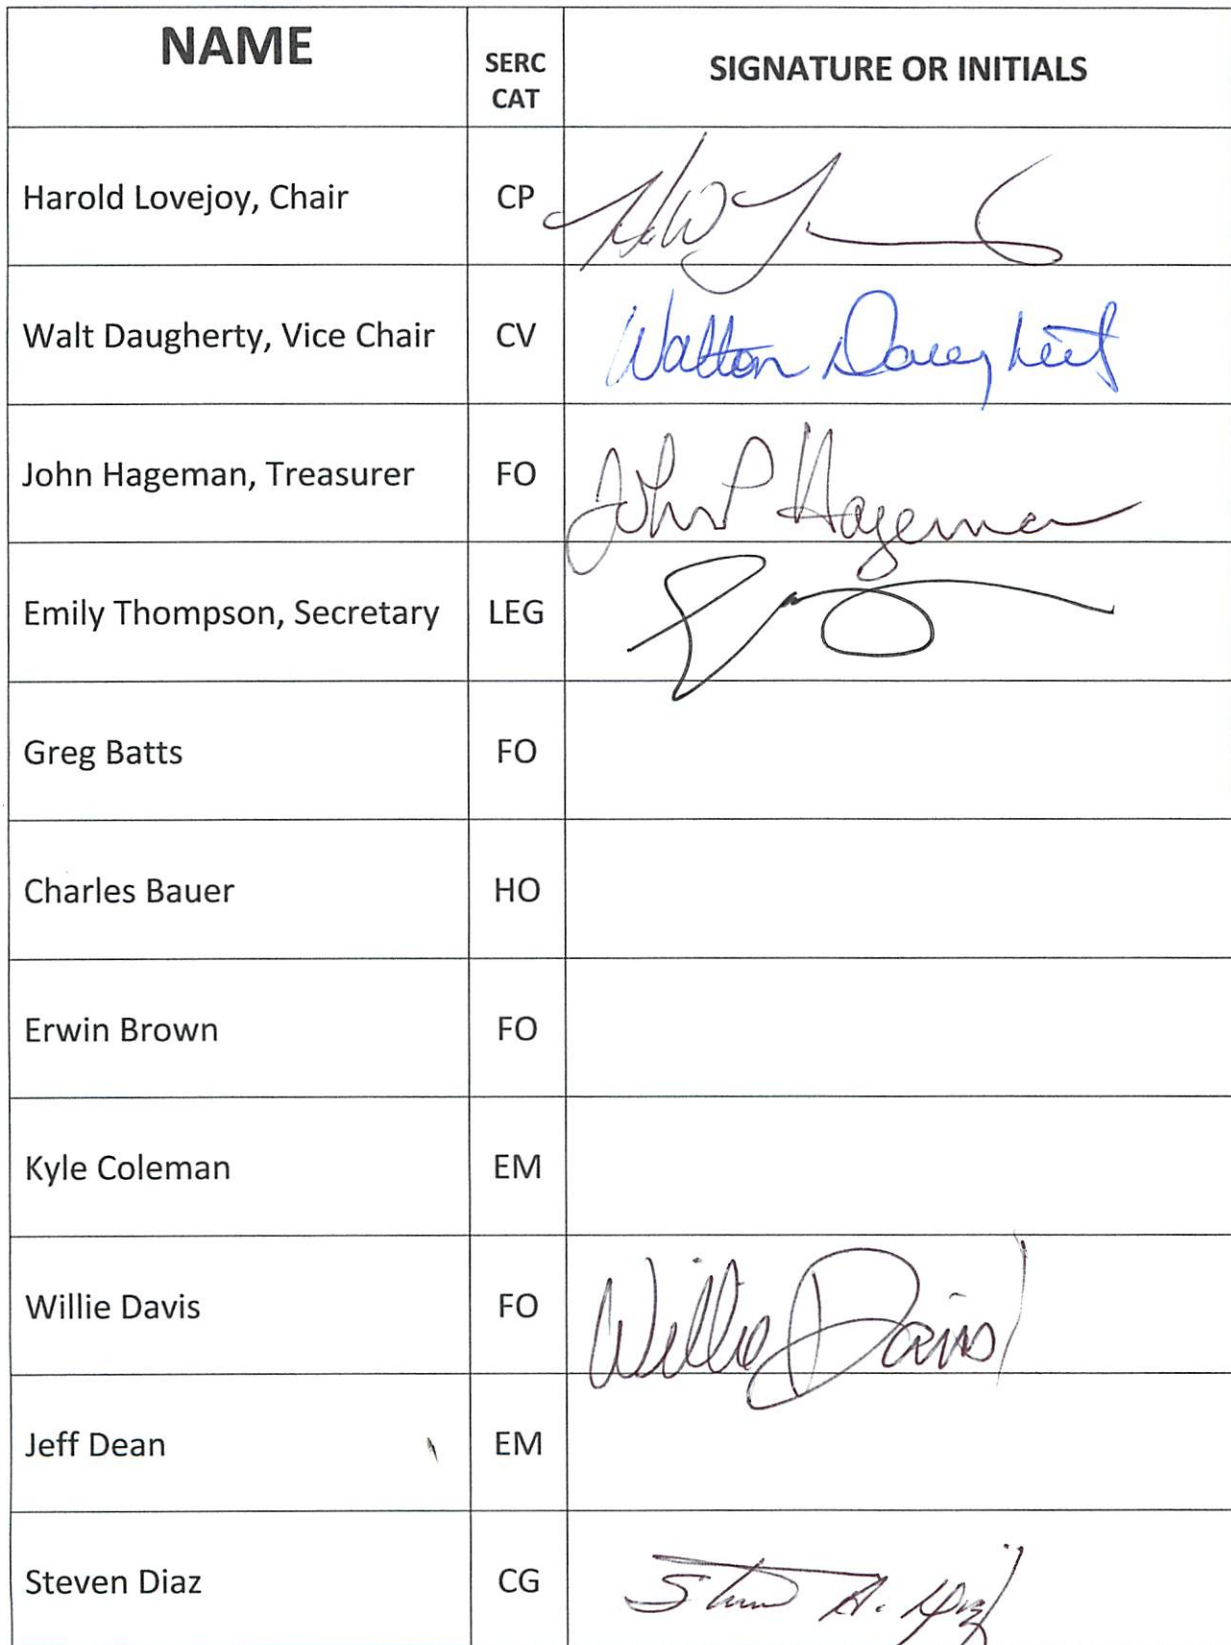 NAME SERC CAT SIGNATURE OR INITIALS
Harold Lovejoy, Chair CP
Walt Daugherty, Vice Chair CV Walton Daugherty
John Hageman, Treasurer FO John P Hageman
Emily Thompson, Secretary LEG
Greg Batts FO
Charles Bauer HO
Erwin Brown FO
Kyle Coleman EM
Willie Davis FO Willie Davis
Jeff Dean EM
Steven Diaz CG Steven A. Diaz